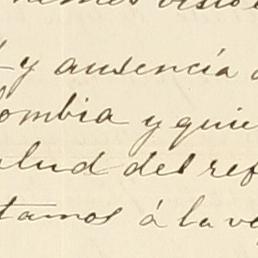 y ausencia
ombia y quie
alud del ref
tamos á la ve